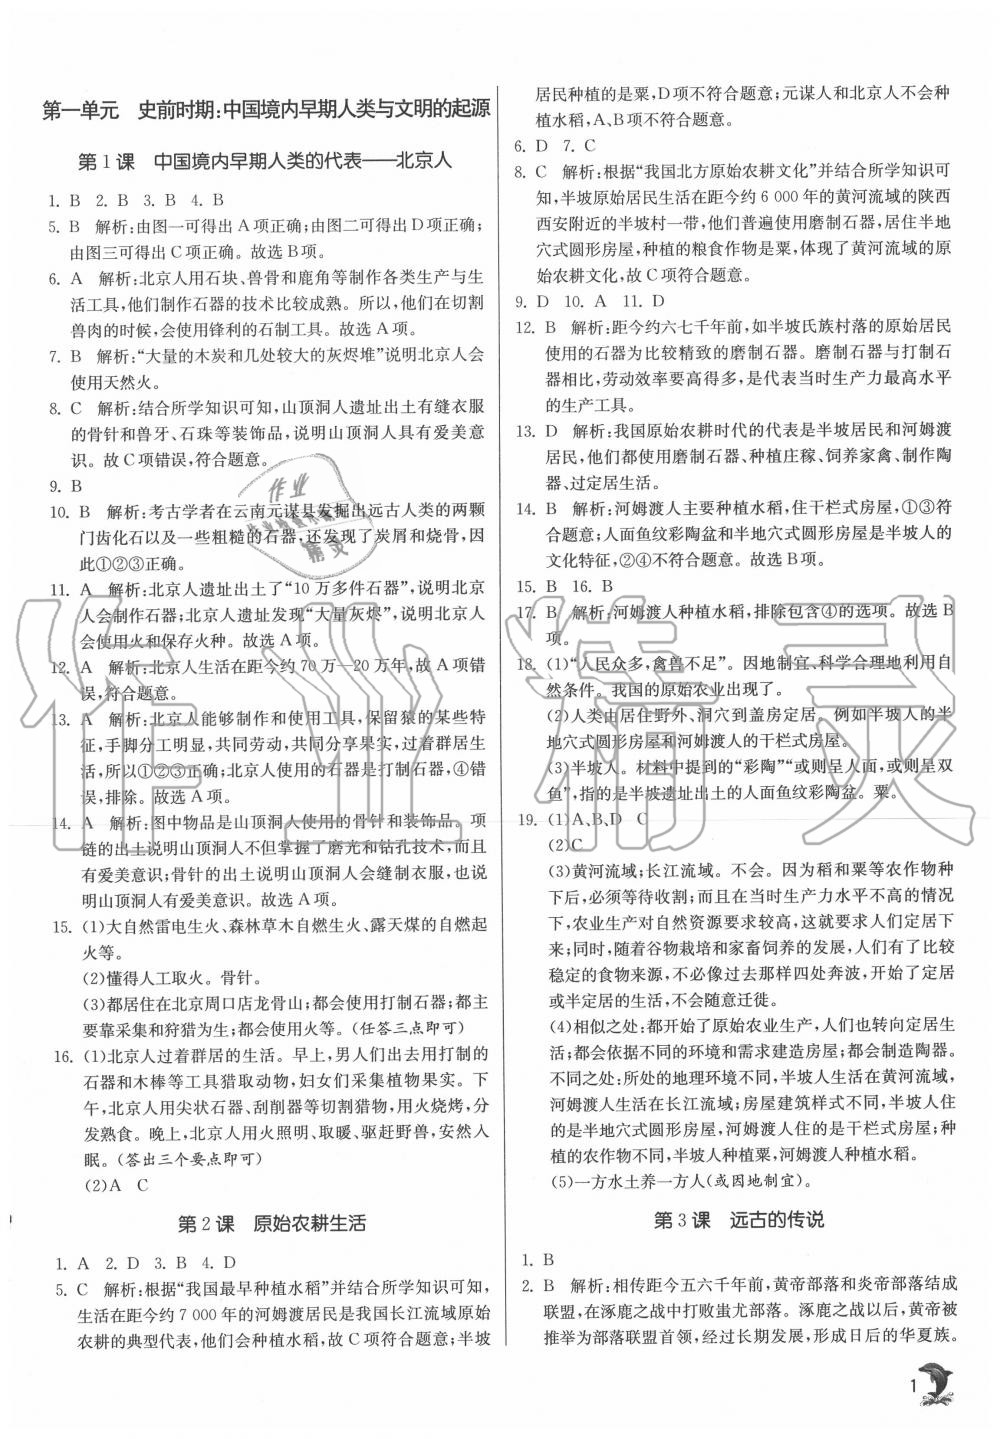 第一单元 史前时期:中国境内早期人类与文明的起源
第1课 中国境内早期人类的代表——北京人
1. B 2. B 3. B 4. B
5. B 解析:由图一可得出A项正确;由图二可得出D项正确;
由图三可得出C项正确。故选B项。
6. A 解析:北京人用石块、兽骨和鹿角等制作各类生产与生
活工具,他们制作石器的技术比较成熟。所以,他们在切割
兽肉的时候,会使用锋利的石制工具。故选A项。
7. B 解析:“大量的木炭和几处较大的灰烬堆”说明北京人会
使用天然火。
8. C 解析:结合所学知识可知,山顶洞人遗址出土有缝衣服
的骨针和兽牙、石珠等装饰品,说明山顶洞人具有爱美意
识。故C项错误,符合题意。
9. B
10. B 解析:考古学者在云南元谋县发掘出远古人类的两颗
门齿化石以及一些粗糙的石器,还发现了炭屑和烧骨,因
此①②③正确。
11. A 解析:北京人遗址出土了“10万多件石器”,说明北京
人会制作石器;北京人遗址发现“大量灰烬”,说明北京人
会使用火和保存火种。故选A项。
12. A 解析:北京人生活在距今约70万—20万年,故A项错
误,符合题意。
13. A 解析:北京人能够制作和使用工具,保留猿的某些特
征,手脚分工明显,共同劳动,共同分享果实,过着群居生
活,所以①②③正确;北京人使用的石器是打制石器,④错
误,排除。故选A项。
14. A 解析:图中物品是山顶洞人使用的骨针和装饰品。项
链的出土说明山顶洞人不但掌握了磨光和钻孔技术,而且
有爱美意识;骨针的出土说明山顶洞人会缝制衣服,也说
明山顶洞人有爱美意识。故选A项。
15. (1)大自然雷电生火、森林草木自燃生火、露天煤的自燃起
火等。
(2)懂得人工取火。骨针。
(3)都居住在北京周口店龙骨山;都会使用打制石器;都主
要靠采集和狩猎为生;都会使用火等。(任答三点即可)
16. (1)北京人过着群居的生活。早上,男人们出去用打制的
石器和木棒等工具猎取动物,妇女们采集植物果实。下
午,北京人用尖状石器、刮削器等切割猎物,用火烧烤,分
发熟食。晚上,北京人用火照明、取暖、驱赶野兽,安然入
眠。(答出三个要点即可)
(2)A C
第2课 原始农耕生活
1. A 2. D 3. B 4. D
5. C 解析:根据“我国最早种植水稻”并结合所学知识可知,
生活在距今约7 000年的河姆渡居民是我国长江流域原始
农耕的典型代表,他们会种植水稻,故C项符合题意;半坡
居民种植的是粟,D项不符合题意;元谋人和北京人不会种
植水稻,A、B项不符合题意。
6. D 7. C
8. C 解析:根据“我国北方原始农耕文化”并结合所学知识可
知,半坡原始居民生活在距今约6 000年的黄河流域的陕西
西安附近的半坡村一带,他们普遍使用磨制石器,居住半地
穴式圆形房屋,种植的粮食作物是粟,体现了黄河流域的原
始农耕文化,故C项符合题意。
9. D 10. A 11. D
12. B 解析:距今约六七千年前,如半坡氏族村落的原始居民
使用的石器为比较精致的磨制石器。磨制石器与打制石
器相比,劳动效率要高得多,是代表当时生产力最高水平
的生产工具。
13. D 解析:我国原始农耕时代的代表是半坡居民和河姆渡
居民,他们都使用磨制石器、种植庄稼、饲养家禽、制作陶
器、过定居生活。
14. B 解析:河姆渡人主要种植水稻,住干栏式房屋,①③符
合题意;人面鱼纹彩陶盆和半地穴式圆形房屋是半坡人的
文化特征,②④不符合题意。故选B项。
15. B 16. B
17. B 解析:河姆渡人种植水稻,排除包含④的选项。故选B
项。
18. (1)“人民众多,禽兽不足”。因地制宜、科学合理地利用自
然条件。我国的原始农业出现了。
(2)人类由居住野外、洞穴到盖房定居。例如半坡人的半
地穴式圆形房屋和河姆渡人的干栏式房屋。
(3)半坡人。材料中提到的“彩陶”“或则呈人面,或则呈双
鱼”,指的是半坡遗址出土的人面鱼纹彩陶盆。粟。
19. (1)A、B、D C
(2)C
(3)黄河流域;长江流域。不会。因为稻和粟等农作物种
下后,必须等待收割;而且在当时生产力水平不高的情况
下,农业生产对自然资源要求较高,这就要求人们定居下
来;同时,随着谷物栽培和家畜饲养的发展,人们有了比较
稳定的食物来源,不必再像那样四处奔波,开始了定居
或半定居的生活,不会随意迁徙。
(4)相似之处:都开始了原始农业生产,人们也转向定居生
活;都会依据不同的环境和需求建造房屋;都会制造陶器。
不同之处:所处的地理环境不同,半坡人生活在黄河流域,
河姆渡人生活在长江流域;房屋建筑样式不同,半坡人住
的是半地穴式圆形房屋,河姆渡人住的是干栏式房屋;种
植的农作物不同,半坡人种植粟,河姆渡人种植水稻。
(5)一方水土养一方人(或因地制宜)。
第3课 远古的传说
1. B
2. B 解析:相传距今五六千年前,黄帝部落和炎帝部落结成
联盟,在涿鹿之战中打败蚩尤部落。涿鹿之战以后,黄帝被
推举为部落联盟首领,经过长期发展,形成日后的华夏族。
1
作业
精灵
作业精灵